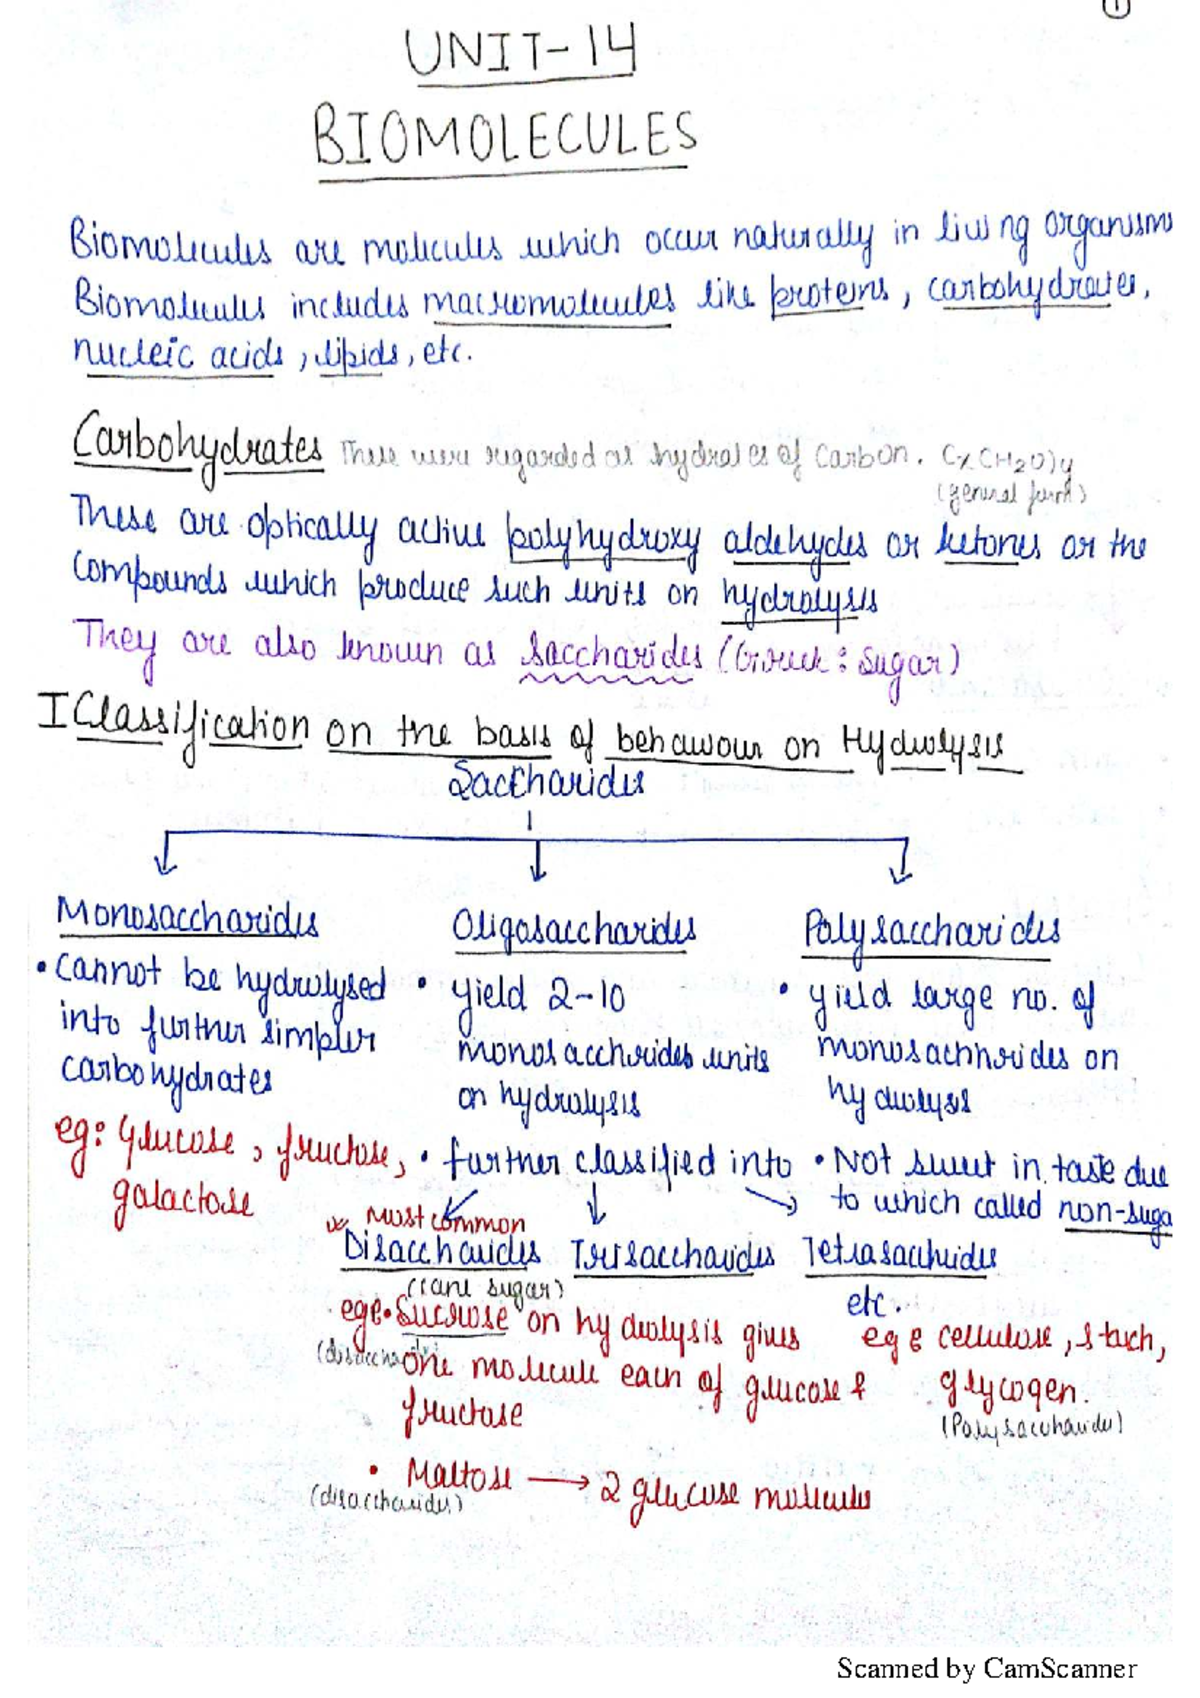 1
UNIT-14
BIOMOLECULES
Biomolecules are molecules which occur naturally in living organisms
Biomolecules includes macromolecules like proteins, carbohydrates,
nucleic acids, lipids, etc.
Carbohydrates These were regarded as hydrates of Carbon. Cx(H2O)y
(general form)
These are optically active polyhydroxy aldehydes or ketones or the
compounds which produce such units on hydrolysis
They are also known as saccharides (Greek: sugar)
I Classification on the basis of behaviour on Hydrolysis
Saccharides
Monosaccharides
• Cannot be hydrolysed
into further simpler
carbohydrates
eg: Glucose, fructose,
galactose
Oligosaccharides
• yield 2-10
monosaccharides units
on hydrolysis
• further classified into
Most common
Disaccharides Trisaccharides Tetrasaccharides
etc.
(cane sugar)
eg: • Sucrose on hydrolysis gives
one molecule each of glucose &
fructose
• Maltose → 2 glucose molecule
(disaccharides)
Polysaccharides
• yield large no. of
monosachharides on
hydrolysis
• Not sweet in taste due
to which called non-suga
eg: cellulose, starch,
glycogen.
(Polysaccharides)
Scanned by CamScanner